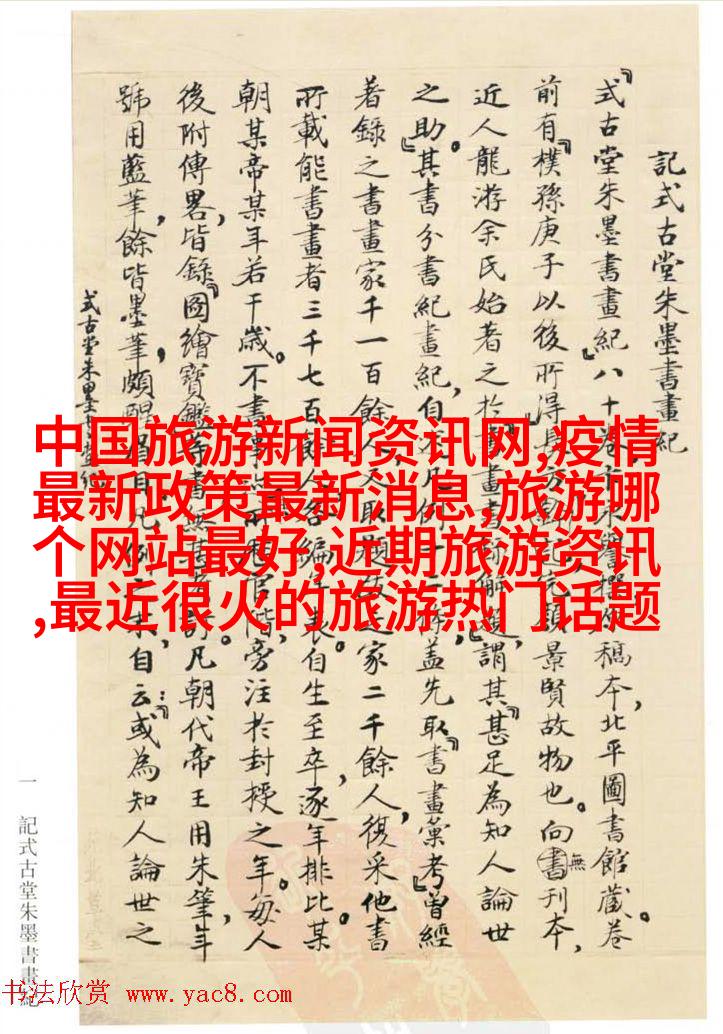 記式古堂朱墨書畫紀
『式古堂朱墨書畫紀』八十卷 稿本，北平圖書館藏。卷
前有『樸孫庚子以後所得 景賢故物也。向無刊本，
近人龍游余氏始著之於 書畫書 解題，謂其『甚足為知人論世
之助』。其書分書紀畫紀，自 凡例十二 蓋先取『書畫彙考』曾經
著錄之書畫家千一百餘人，又取 之家二千餘人，復采他書
所載能書畫者三千七百餘人 編，表自生至卒，逐年排比。某
朝某帝某年若干歲。不書 階，旁注於封授之年。每人
後附傳畧，皆錄『圖繪寶鑑 書 凡朝代帝王用朱筆，年
號用藍筆，餘皆墨筆，頗醒眉目。凡例之末，自云：『或為知人論世之
式古堂朱墨書畫紀
一 記式古堂朱墨書畫紀
中国旅游新闻资讯网,疫情
最新政策最新消息,旅游哪
个网站最好,近期旅游资讯
,最近很火的旅游热门话题
书法欣赏 www.yac8.com